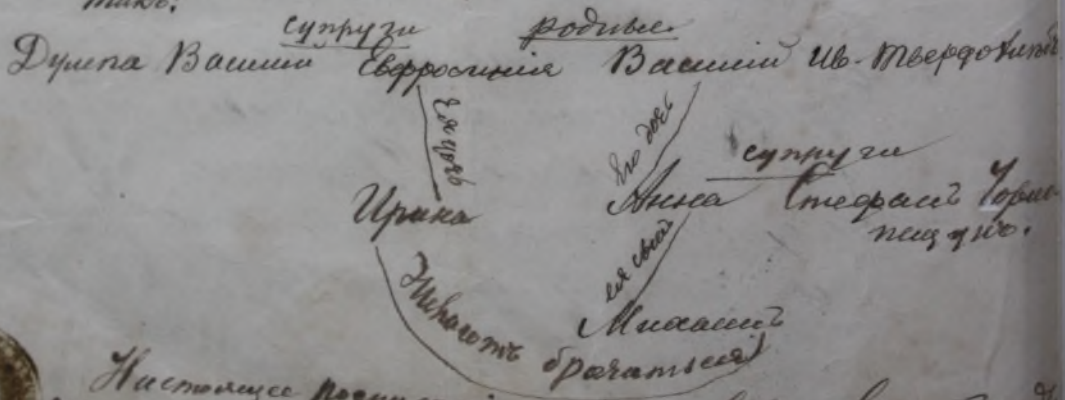 такъ:
супруги родные
Дулепа Василий Евфросинія Василій Ив. Твердохлебъ
Ея дочь
Его дочь
супруги
Ирина Анна Стефанъ
ея сынъ
Михаилъ
Желаютъ брачаться
Настоящее